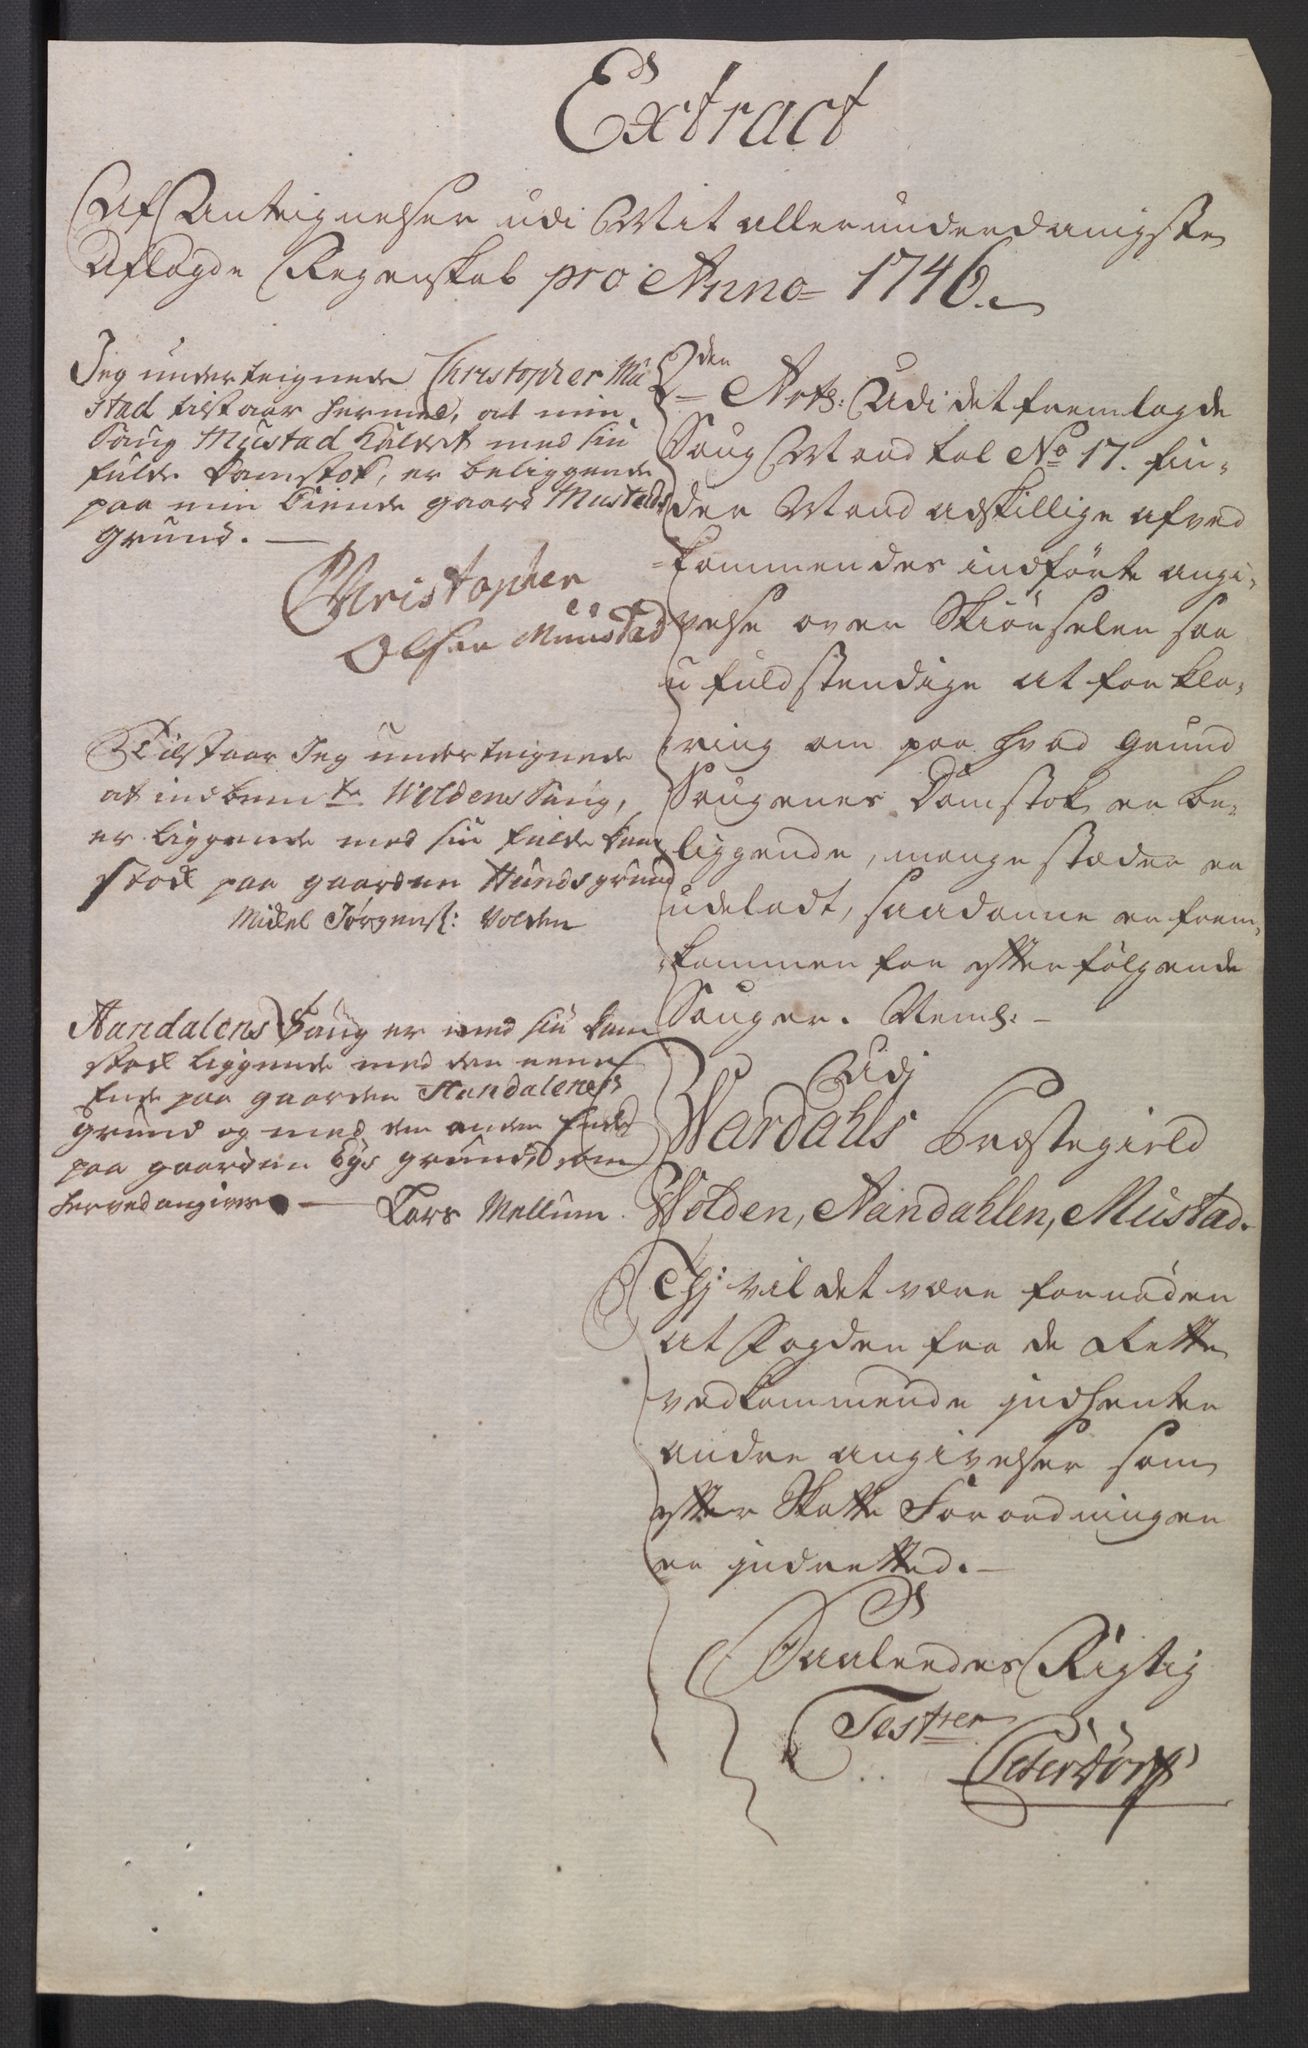 Extract
Af Anteignelser udi Mit allerunderdanigste
Aflagde Regenskab pro Anno 1746.
Jeg underteignede Christopher Mu
stad tilstaar hermed, at min
Saug Mustad kaldet med sin
fulde Damstok, er beliggende
paa min Eiende gaard Mustads
grund.
Christopher
Olsen Muustad
Tilstaar Jeg underteignede
at indbem.te Woldens Saug,
er liggende med sin fulde Dam
stock paa gaarden Hunds grund
Mickel Jørgens: Volden
Aandalens Saug er med sin Dam
stock liggende med den eene
Ende paa gaarden Aandalens
grund og med den anden Ende
paa gaarden Eys grund, som
herved angives
Lars Mellum
2den Artl: Udi det fremlagde
Saug Mandtal No 17. fin-
des Mand adskillige af ved
kommendes indførte angi-
velse over Skiønselen saa
ufuldstendige at forkla-
ring om paa hvad Grund
Saugenes Damstok er be-
liggende, mange stæder er
udeladt, saadanne er frem-
kommen for efterfølgende
Sauger. Neml:
Udj
Wardahls Præstegield
Wolden, Aandahlen, Mustad.
Thj vil det være fornøden
at Fogden fra de Rette
vedkommende jndhenter
andre angivelser som
efter Skatte Forordningen
er jndretted.
Saaleedes Rigtig
Test:rer
Peterdorff